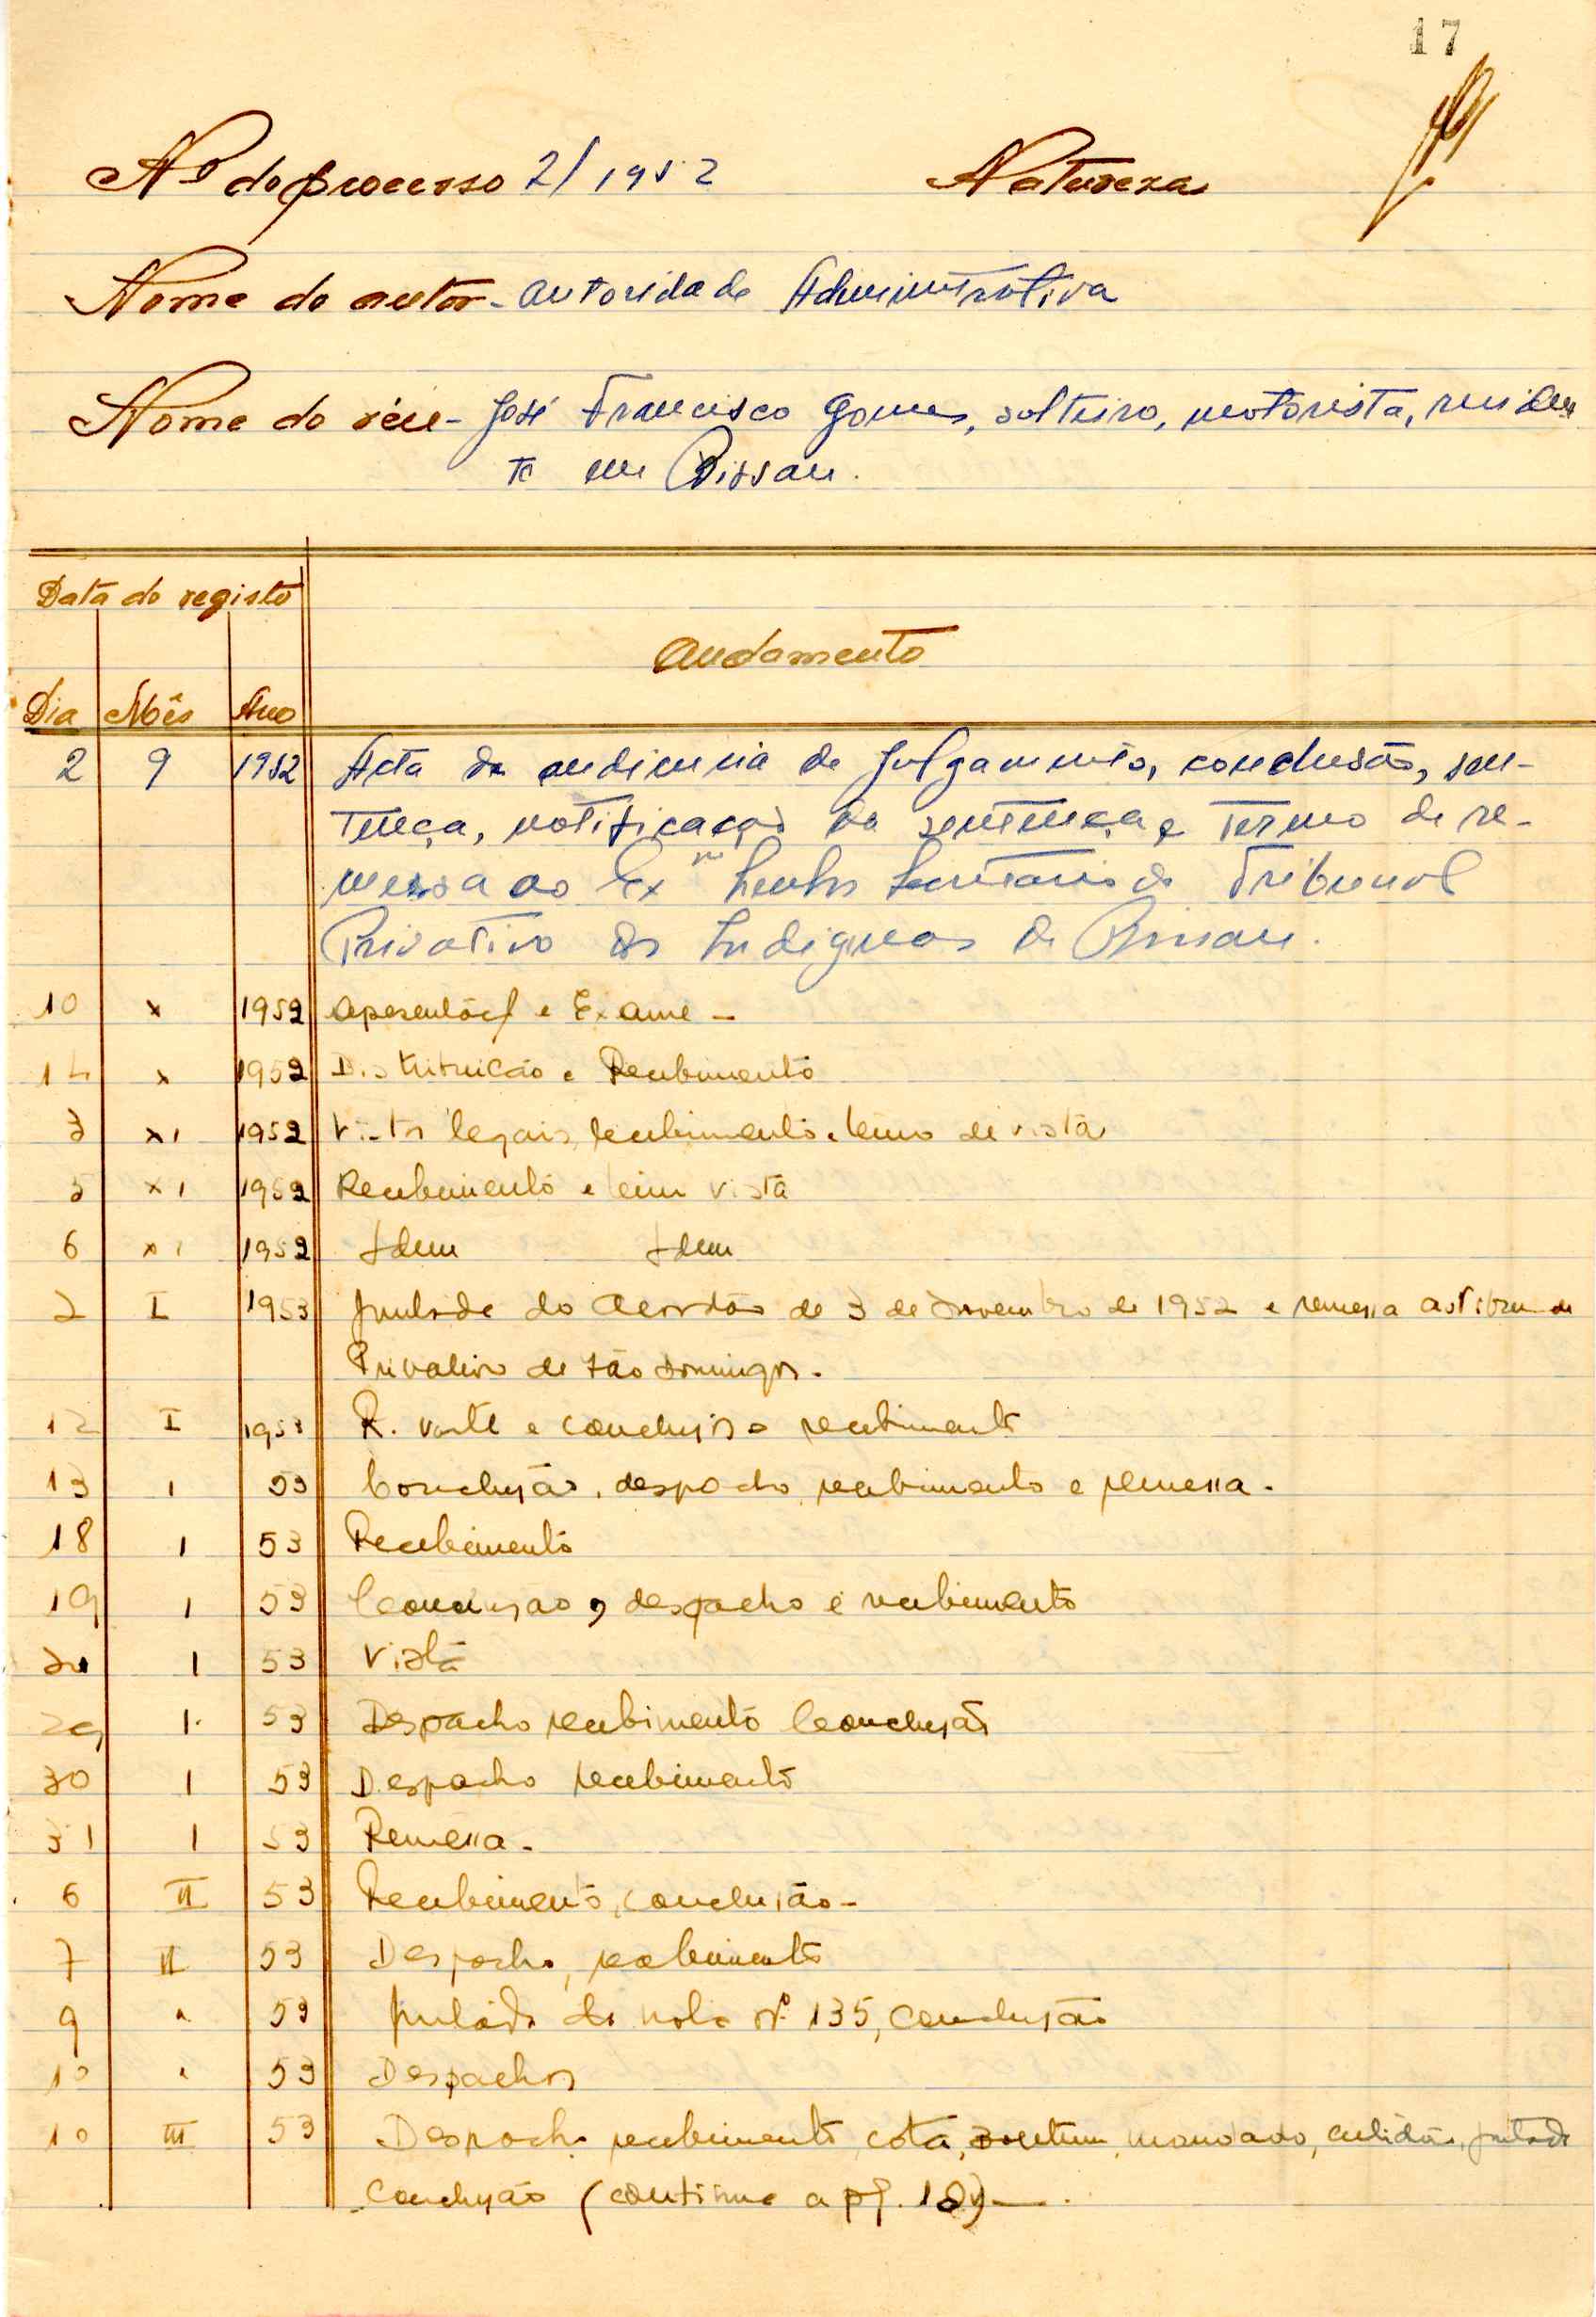 17
Nº do processo 2/1952 Natureza
Nome do autor - Autoridade Administrativa
Nome do réu - José Francisco Gomes, solteiro, motorista, residen
te em Bissau.
Data do registo
Andamento
Dia Mês Ano
2 9 1952 Acta da audiencia de Julgamento, conclusão, sen-
tença, notificação da sentença e Termo de re-
messa ao Exmo Senhor Secretario do Tribunal
Privativo dos Indigenas de Bissau.
10 X 1952 Apresentação e Exame -
14 X 1952 Distribuicão e Recebimento
3 XI 1952 Vistos legais, recebimento e termo de vista
5 XI 1952 Recebimento e termo vista
6 XI 1952 Idem Idem
2 I 1953 Juntada do Acordão de 3 de Dezembro de 1952 e remessa ao Tribunal
Privativo de São Domingos.
12 I 1953 e conclusão e recebimento
13 1 53 Conclusão, despacho, recebimento e remessa.
18 1 53 Recebimento
19 1 53 Conclusão, despacho e recebimento
20 1 53 Vista
29 1 53 Despacho recebimento Conclusão
30 1 53 Despacho recebimento
31 1 53 Remessa.
6 II 53 Recebimento, conclusão -
7 II 53 Despacho, recebimento
9 " 53 Juntada da nota nº 135, conclusão
10 " 53 Despachos
10 III 53 Despacho, recebimento, cota, mandado, certidão, juntada
Conclusão (continua a pg. 18) —.